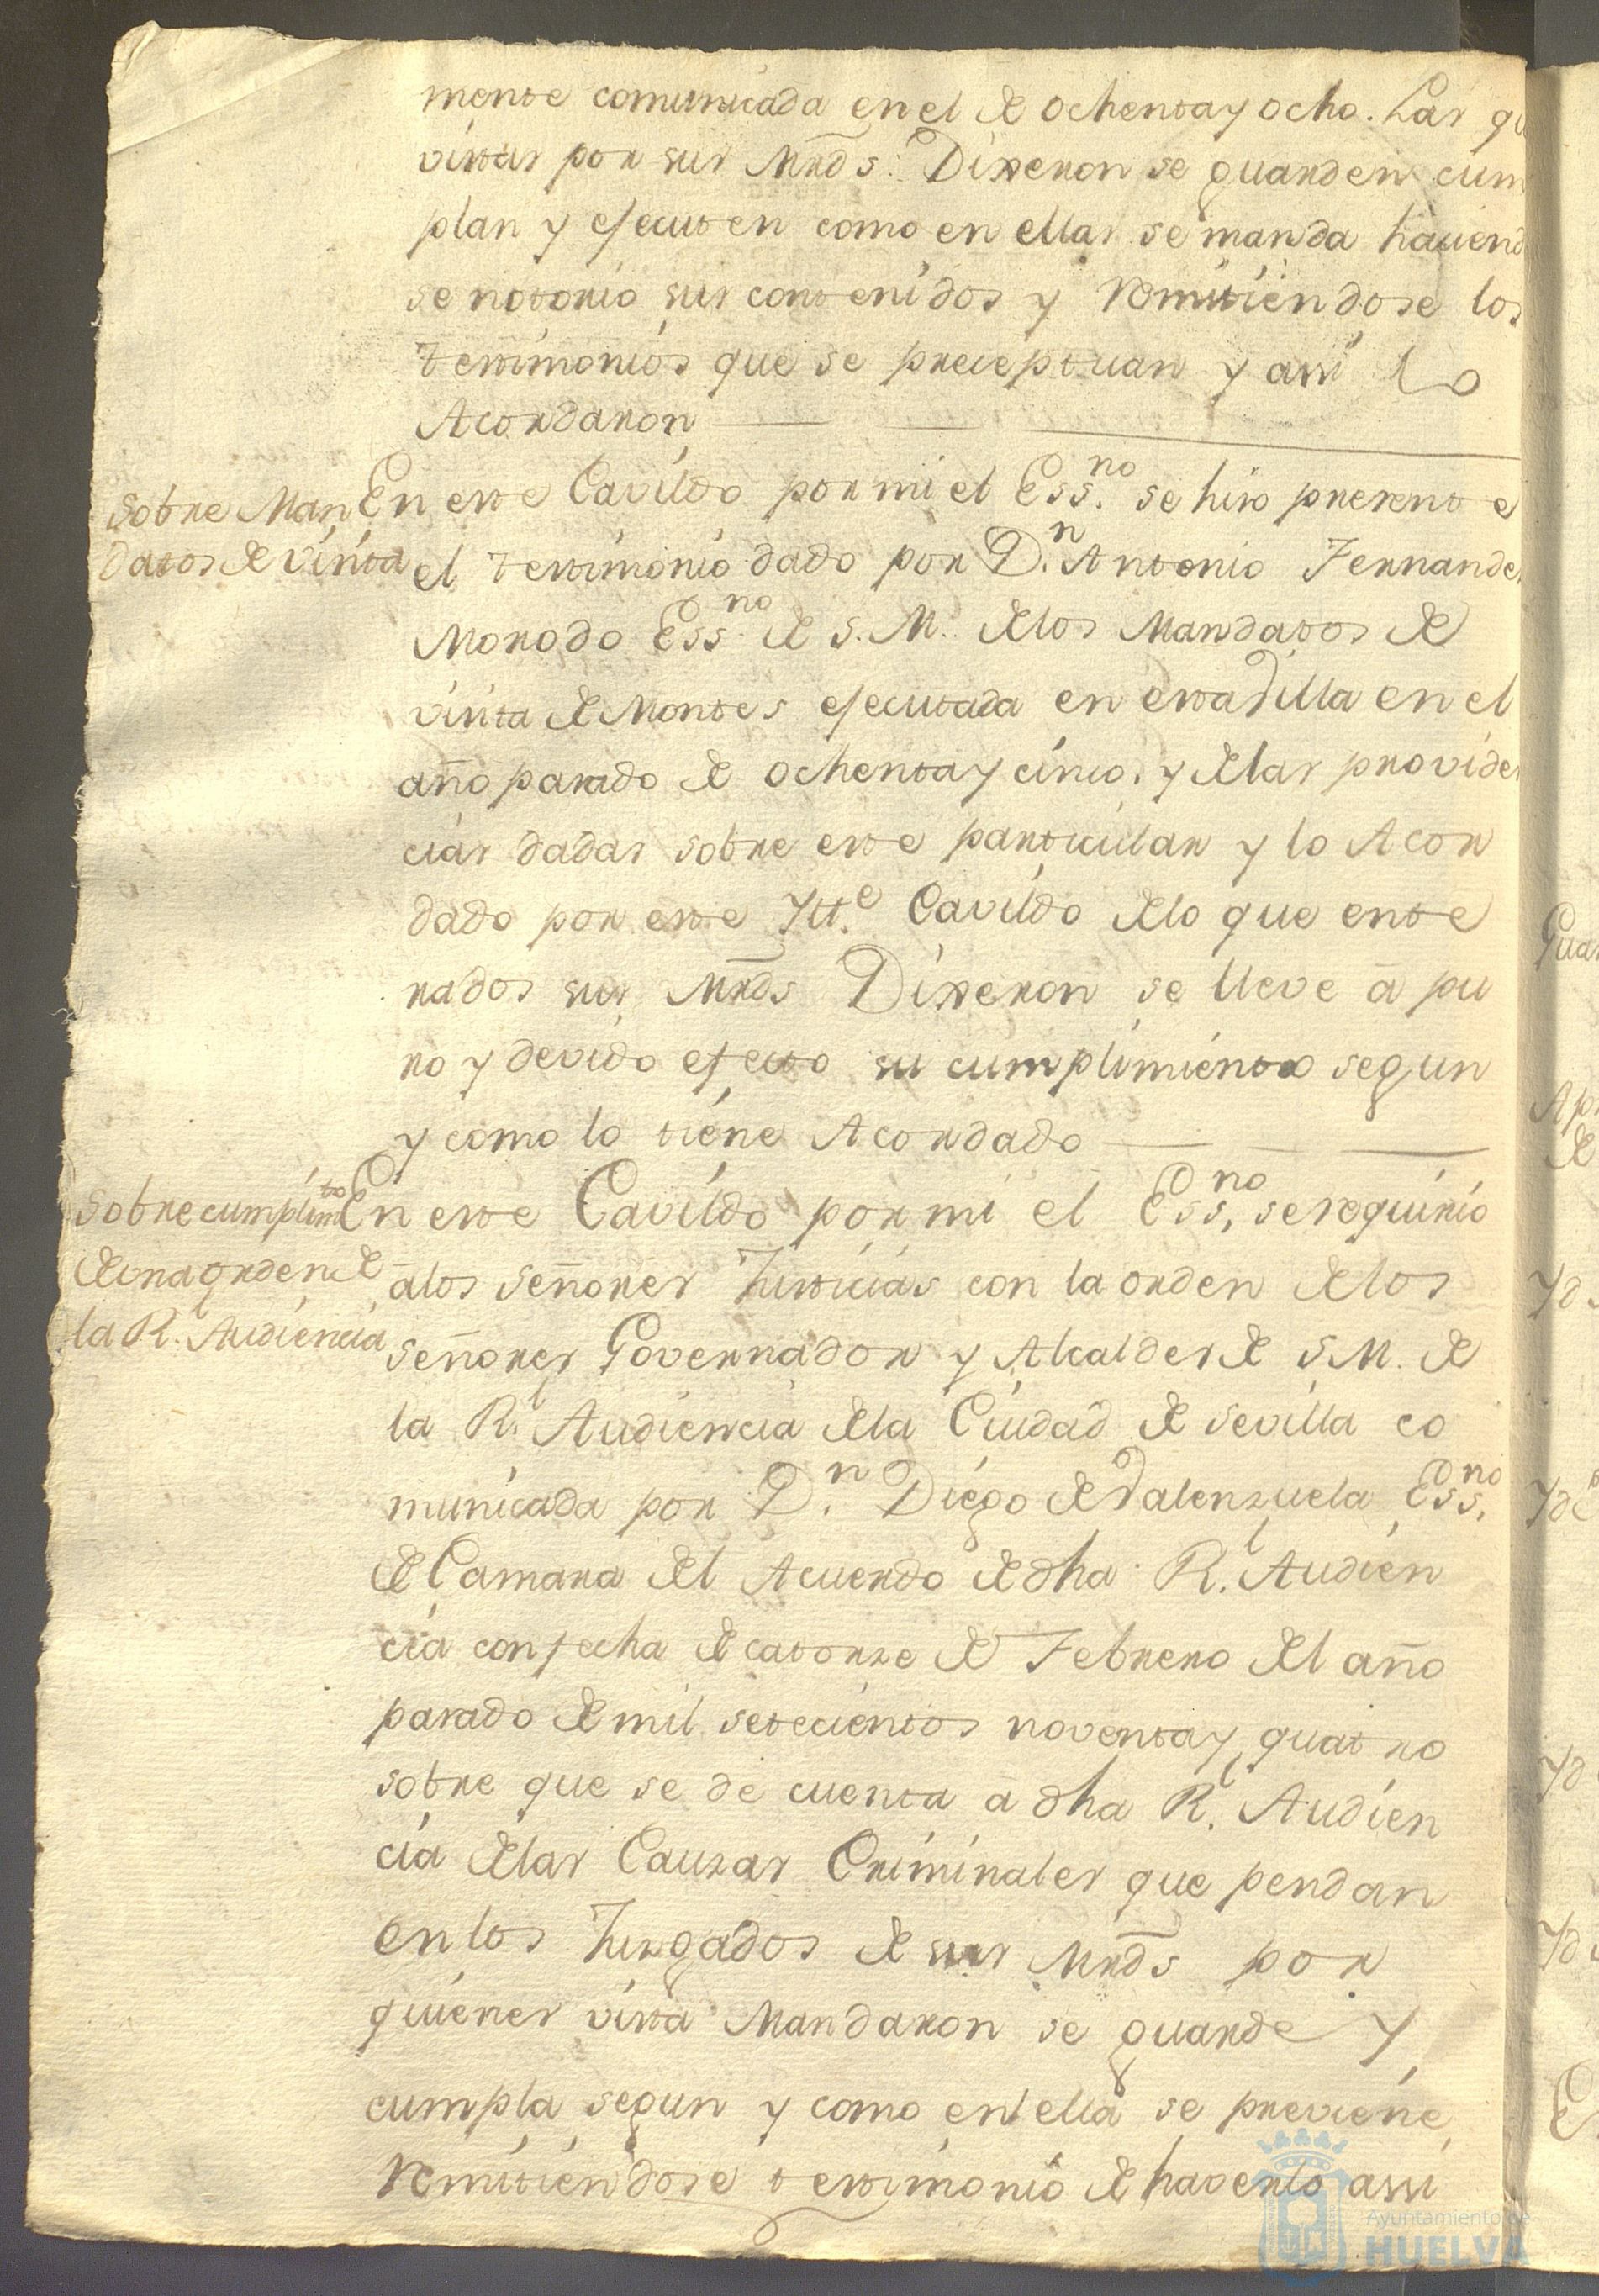 mente comunicada en el de ochenta y ocho. Las qu
vistas por sus Mrds. Dixeron se guarden cum
plan y efecuten como en ellas se manda haciend
se notorio sus contenidos y remitiendose los
testimonios que se preceptuan y assi lo
Acordaron
Sobre Man
datos de visita
En este Cavildo por mi el Ess.no se hizo presente
el testimonio dado por D.n Antonio Fernande
Morodo Ess.no de S. M. de los Mandatos de
visita de Montes efecutada en esta Villa en el
año pasado de ochenta y cinco. y de las providen
cias dadas sobre este particular y lo Acor
dado por este Iltt.e Cavildo de lo que ente
rados sus Mrds Dixeron se lleve â pu
ro y devido efecto su cumplimiento segun
y como lo tiene Acordado
Sobre cumplim.to
de una orden de
la R.l Audiencia
En este Cavildo por mi el Ess.no se requirio
â los Señores Justicias con la orden de los
Señores Governador y Alcaldes de S.M. de
la R.l Audiencia de la Ciudad de Sevilla co
municada por D.n Diego de Valenzuela Ess.no
de Camara del Acuerdo de dha R.l Audien
cia con fecha de catorze de Febrero del año
pasado de mil setecientos noventa y quatro
sobre que se de cuenta â dha R.l Audien
cia de las Cauzas Criminales que pendan
en los Juzgados de sus Mrds por
quienes vista Mandaron se guarde y
cumpla segun y como en ella se previene
remitiendose testimonio de haverlo assi
Gua
Ap
de
Yd
Yd
Yd
Yd
E
Ayuntamiento de
HUELVA